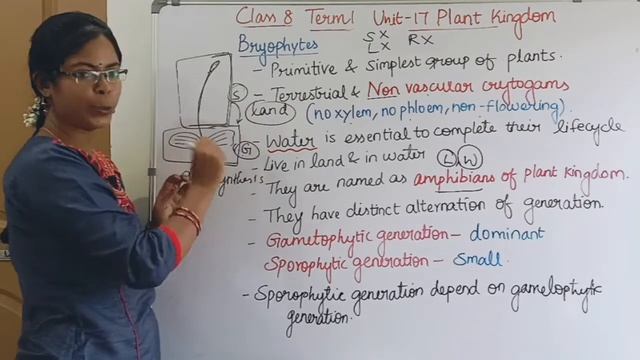 Class 8 Term 1 Unit-17 Plant Kingdom
Bryophytes
S X R X
L X
- Primitive & Simplest group of plants.
- Terrestrial & Non vascular crytogams
Land (no xylem, no phloem, non-flowering).
- Water is essential to complete their lifecycle
- Live in land & in water L W
- They are named as amphibians of plant kingdom.
- They have distinct alternation of generation.
- Gametophytic generation - dominant
Sporophytic generation - Small.
- Sporophytic generation depend on gametophytic
generation.
S
G